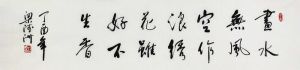 畫水
無風
空作
浪繡
花雖
好不
生香
丁酉年